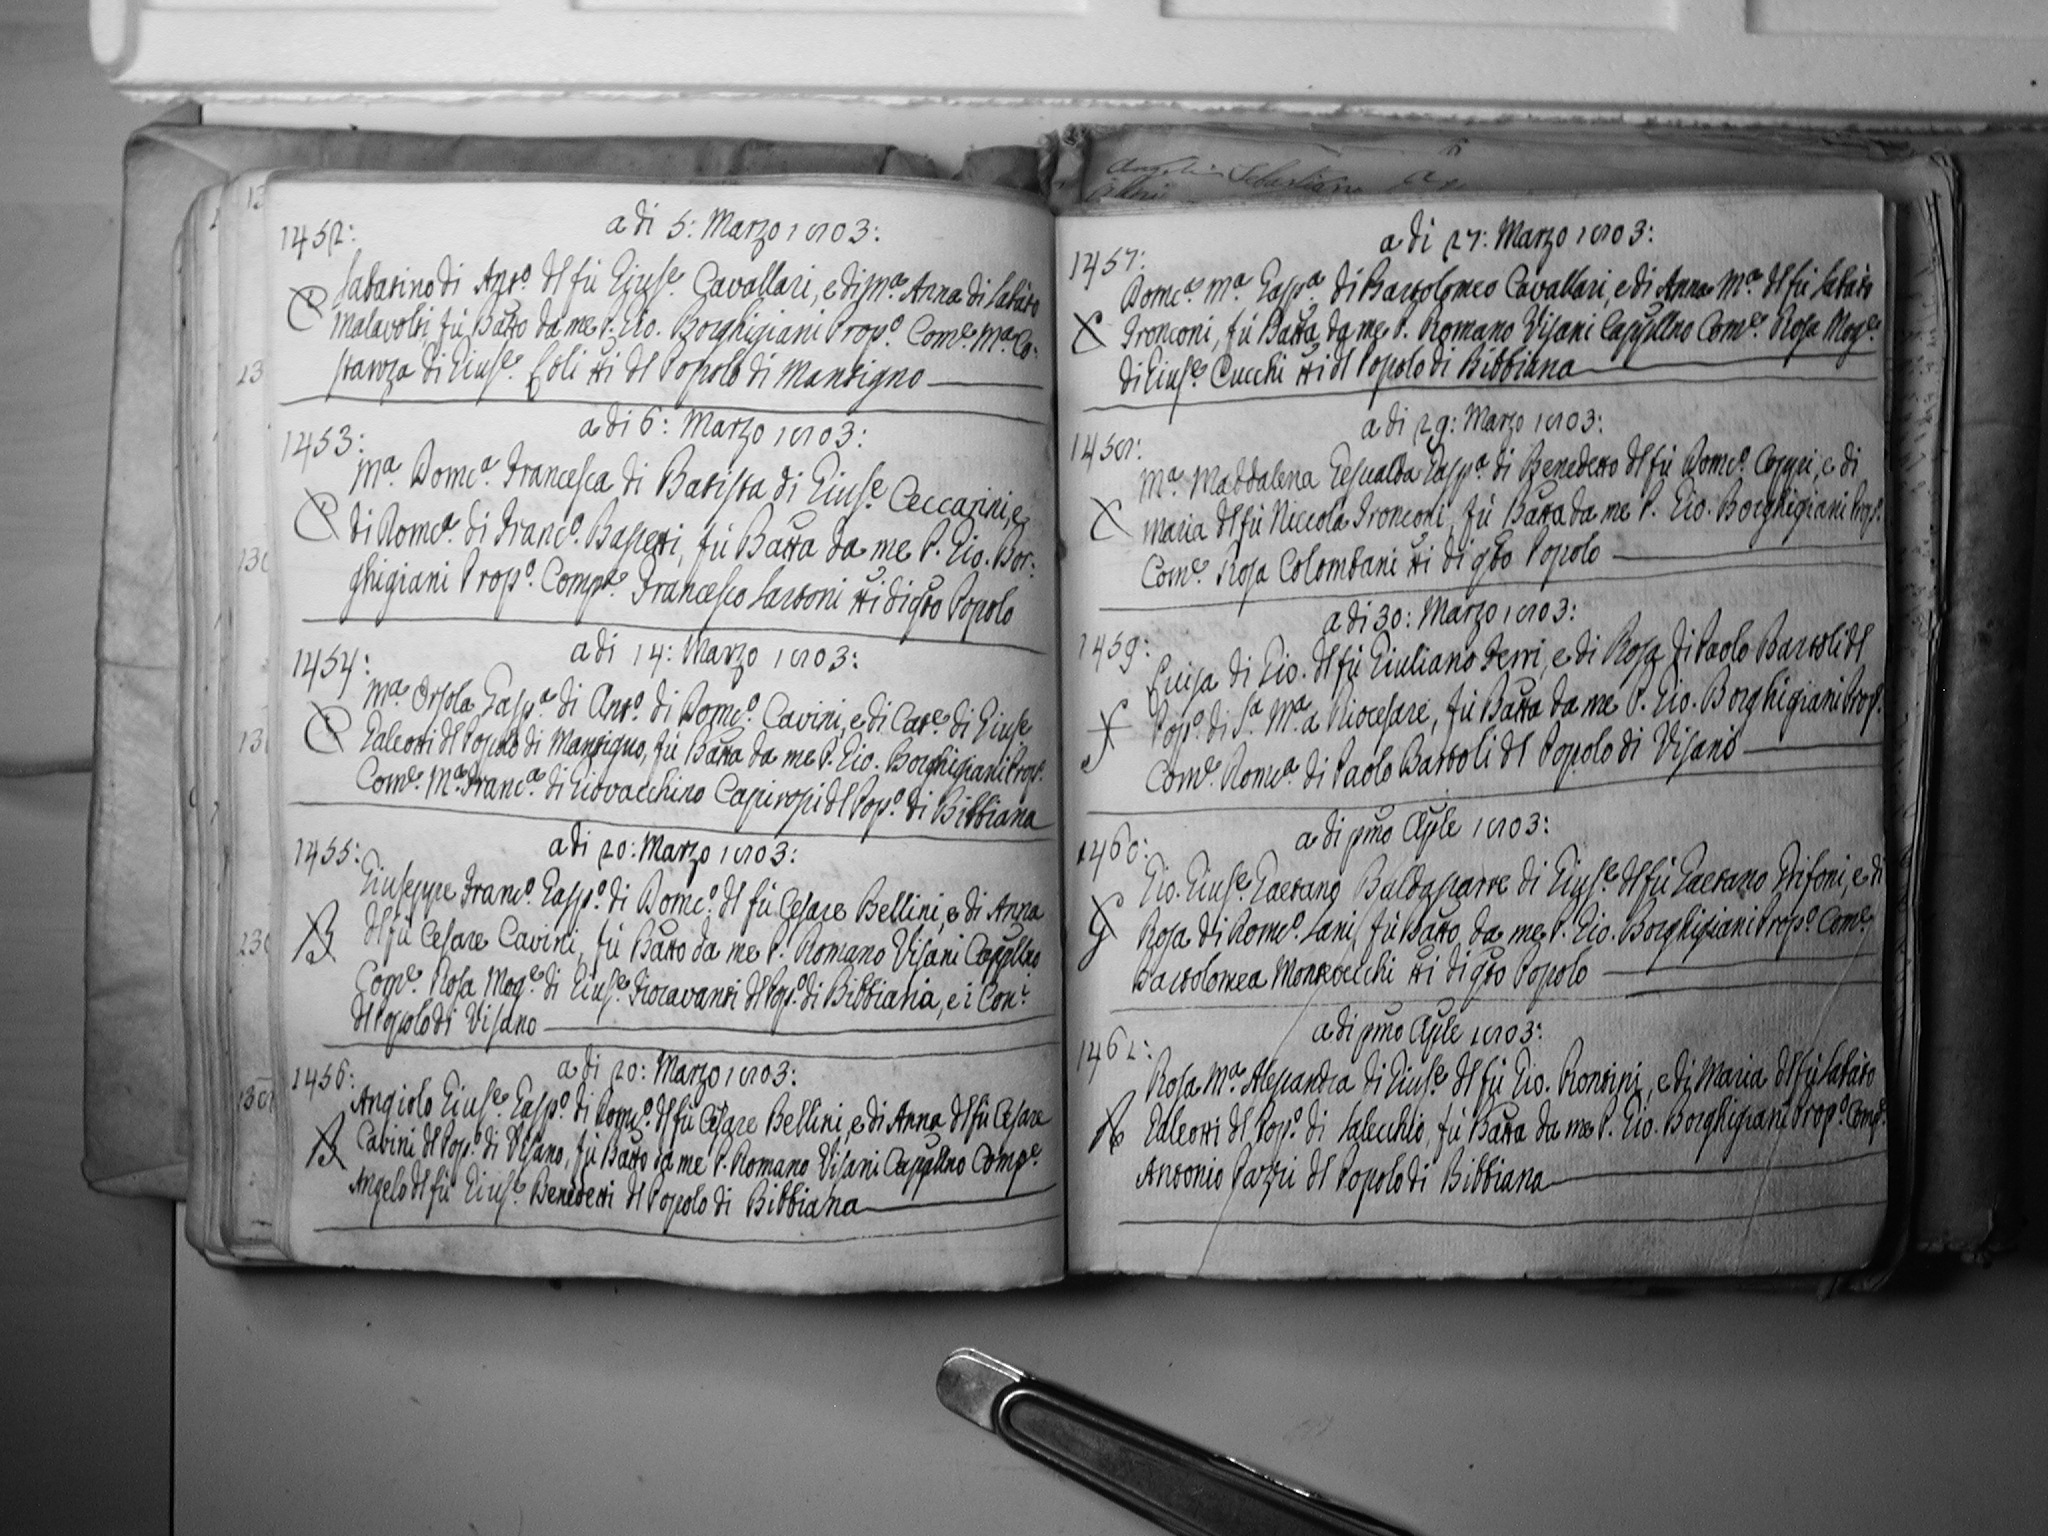 1452:
a di 5: Marzo 1803:
Sabatino di Ant.o dl fù Giuse.e Cavallari, e di M.a Anna di Sabato
Malavolti, fù Batto da me P. Gio. Borghigiani Prop.o Com.e M.a Co:
stanza di Giuse.e tti dl Popolo di Mantigno
1453:
a di 6: Marzo 1803:
M.a Dom.ca Francesca di Batista di Giuse.e Ceccarini, e
di Dom.ca di Franc.o Bassetti, fù Batta da me P. Gio. Bor:
ghigiani Prop.o Comp.e Francesco Sartoni tti di qto Popolo
1454:
a di 14: Marzo 1803:
M.a Orsola Gasp.a di Ant.o di Dom.co Cavini, e di Cat.e di Giuse
Galeotti dl Popolo di Mantigno, fù Batta da me P. Gio. Borghigiani Prop.o
Com.e M.a Franc.a di Giovacchino Capirossi dl Pop.o di Bibbiana
1455:
a di 20: Marzo 1803:
Giuseppe Franc.o Gasp.o di Dom.co dl fù Cesare Bellini, e di Anna
dl fù Cesare Cavini, fù Batto da me P. Romano Visani Cappllno
Com.e Rosa Mog.e di Giuse.e Fioravanti dl Pop.o di Bibbiana, e i Con.i
dl Popolo di Visano
1456:
a di 20: Marzo 1803:
Angiolo Giuse.e Gasp.o di Dom.co dl fù Cesare Bellini, e di Anna dl fù Cesare
Cavini dl Pop.o di Visano, fù Batto da me P. Romano Visani Cappllno Comp.e
Angelo dl fù Giuse.e Benedetti dl Popolo di Bibbiana
1457:
a di 27: Marzo 1803:
Dom.ca M.a Gasp.a di Bartolomeo Cavallari, e di Anna M.a dl fù Sabato
Tronconi, fù Batta da me P. Romano Visani Cappllno Com.e Rosa Mog.e
di Giuse.e Cucchi tti dl Popolo di Bibbiana
1458:
a di 29: Marzo 1803:
M.a Maddalena Gesualda Gasp.a di Benedetto dl fù Dom.co Coppi, e di
Maria dl fù Niccola Tronconi, fù Batta da me P. Gio. Borghigiani Prop.o
Com.e Rosa Colombani tti di qto Popolo
1459:
a di 30: Marzo 1803:
Luisa di Gio. dl fù Giuliano Ferri, e di Rosa di Paolo Bartoli dl
Pop.o di S.a M.a a Riocesare, fù Batta da me P. Gio. Borghigiani Prop.o
Com.e Dom.ca di Paolo Bartoli dl Popolo di Visano
1460:
a di pmo Aple 1803:
Gio. Giuse.e Gaetano Baldassarre di Giuse.e dl fù Gaetano Grifoni, e di
Rosa di Dom.co Sani, fù Batto da me P. Gio. Borghigiani Prop.o Com.e
Bartolomea Montevecchi tti di qto Popolo
1461:
a di pmo Aple 1803:
Rosa M.a Alessandra di Giuse.e dl fù Gio. Rontini, e di Maria dl fù Sabato
Galeotti dl Pop.o di Salecchio, fù Batta da me P. Gio. Borghigiani Prop.o Comp.e
Antonio Pazzi dl Popolo di Bibbiana